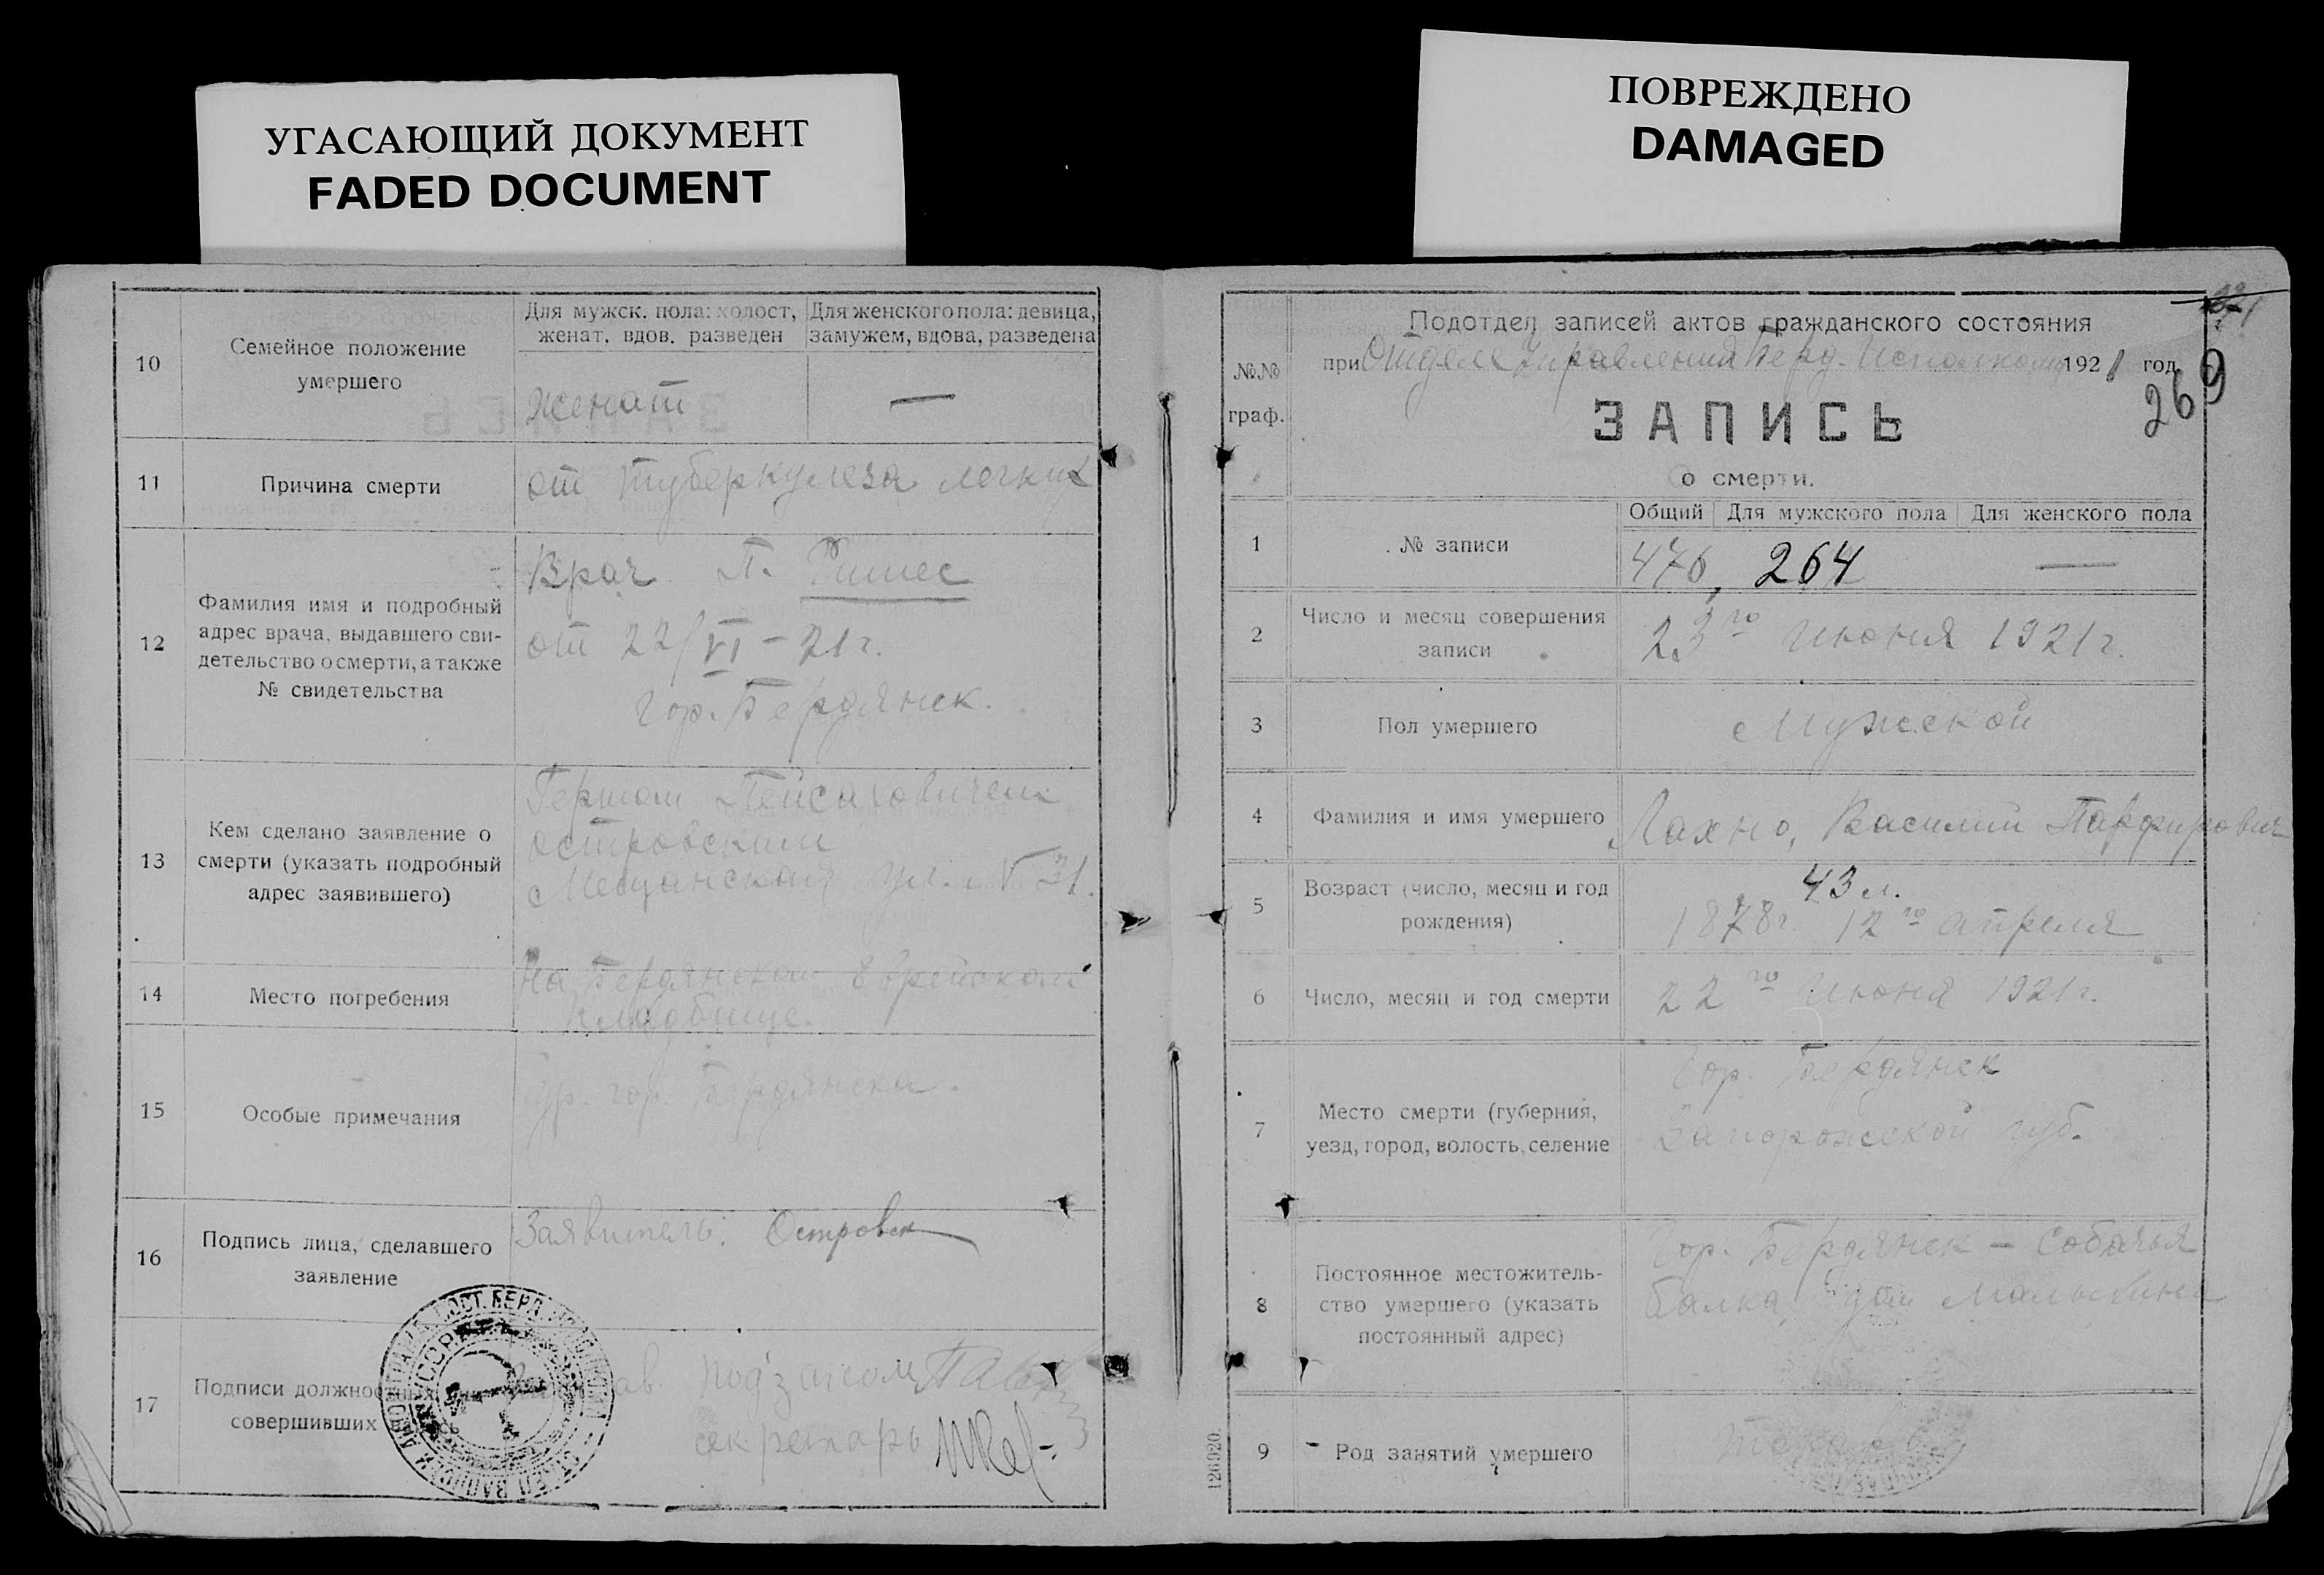 УГАСАЮЩИЙ ДОКУМЕНТ
FADED DOCUMENT
ПОВРЕЖДЕНО
DAMAGED
10
Семейное положение
умершего
Для мужск. пола: холост,
женат, вдов. разведен
Для женского пола: девица,
замужем, вдова, разведена
женат
—
11
Причина смерти
от туберкулеза легких
12
Фамилия имя и подробный
адрес врача, выдавшего сви-
детельство о смерти, а также
№ свидетельства
Врач П.
от 22/VI – 21 г.
Гор. Бердянск.
13
Кем сделано заявление о
смерти (указать подробный
адрес заявившего)
Пейсаховичем
Островским
Мещанская ул. № 31.
14
Место погребения
На Бердянском Еврейском
кладбище.
15
Особые примечания
Ур. гор. Бердянска.
16
Подпись лица, сделавшего
заявление
Заявитель: Островск
17
Подписи должностных
совершивших запись
Подзагсом
Секретарь
Подотдел записей актов гражданского состояния
при Отделе Управления Берд. Исполкома 1921 год
269
№№
граф.
ЗАПИСЬ
о смерти.
Общий
Для мужского пола
Для женского пола
1
№ записи
476, 264 —
2
Число и месяц совершения
записи
23го Июня 1921 г.
3
Пол умершего
Мужской
4
Фамилия и имя умершего
Лахно, Василий Парфирович
5
Возраст (число, месяц и год
рождения)
43 л.
1878 г. 12го апреля
6
Число, месяц и год смерти
22го Июня 1921 г.
7
Место смерти (губерния,
уезд, город, волость, селение
Гор. Бердянск
Запорожской губ.
8
Постоянное местожитель-
ство умершего (указать
постоянный адрес)
Гор. Бердянск – Собачья
балка, дом
9
Род занятий умершего
126920.